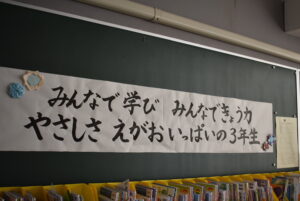 みんなで学び みんなできょう力
やさしさ えがお いっぱいの3年生